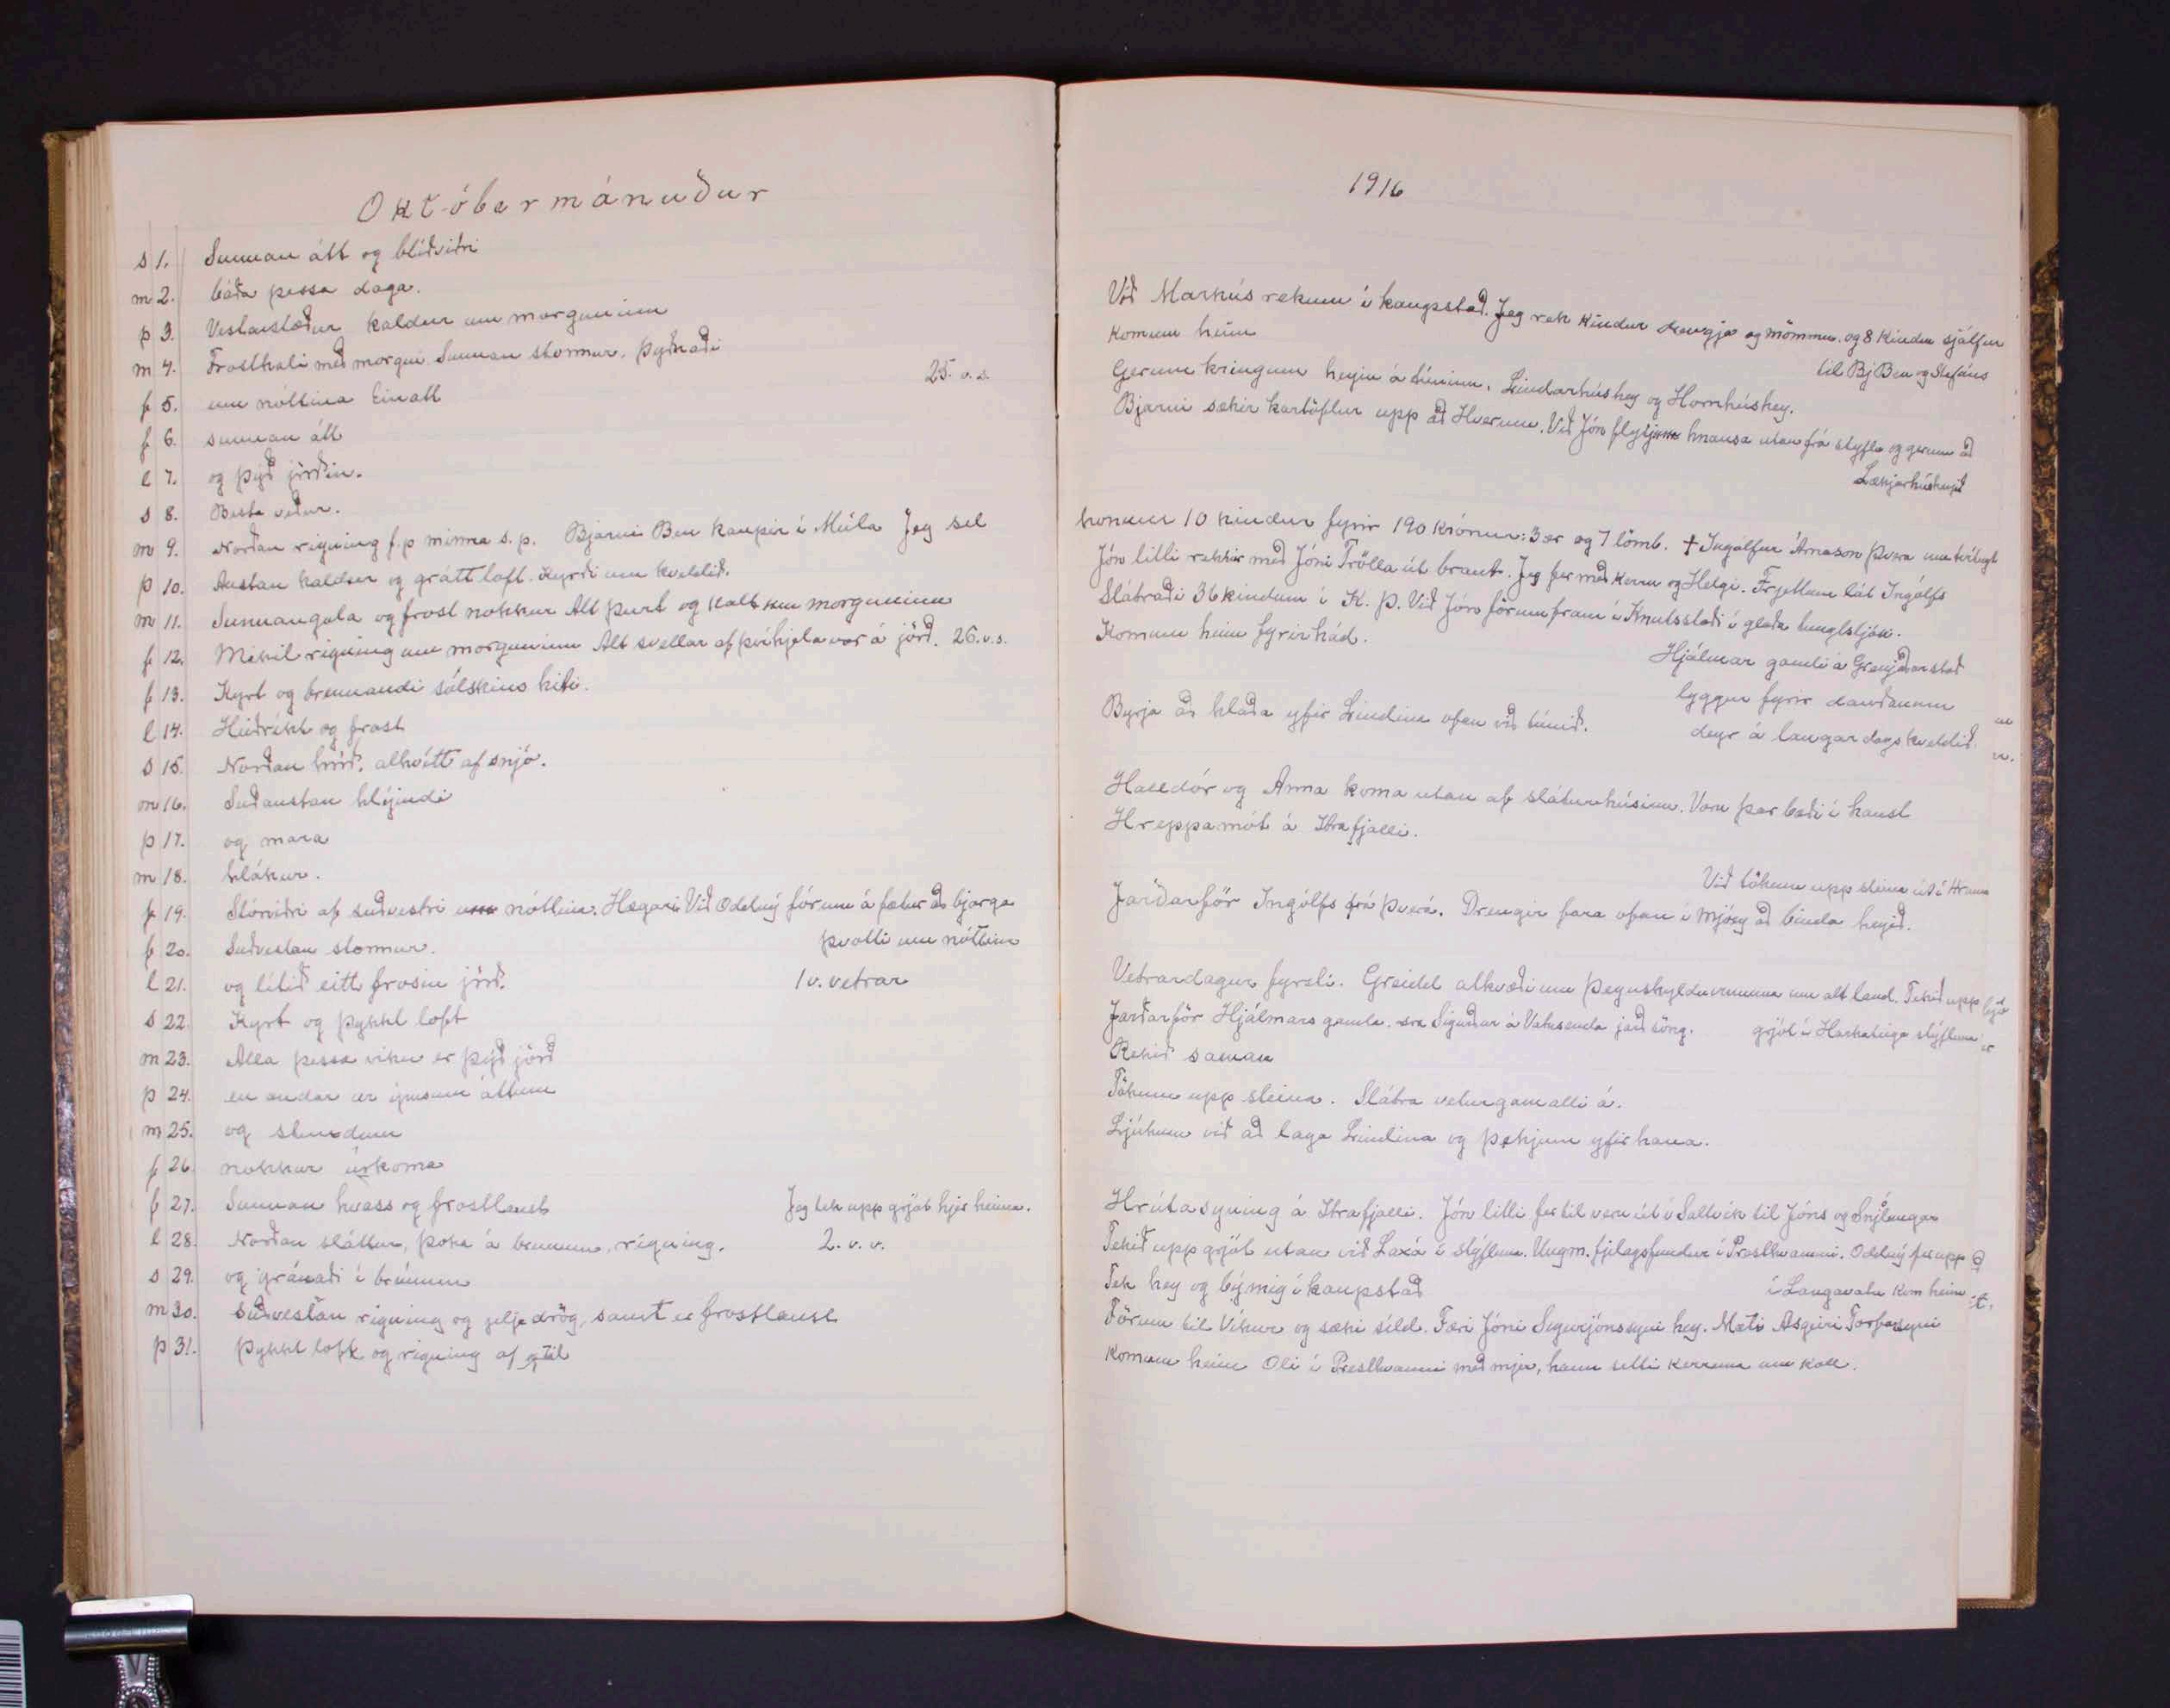 Októbermánuður
s 1. Sunnan átt og blíðviðri
m 2. báða þessa daga.
þ 3. Vestanstæður kaldur um morguninn
m 4. Frostkali með morgni Sunnan stormur. Þyðnaði
f 5. um nóttina Einatt 25. v. s.
f 6. sunnan átt
l 7. og þýð jörðin.
s 8. Besta veður.
m 9. Norðan rigning f.p minna s.p. Bjarni Ben kaupir í Múla Jeg sel
þ 10. Austan kaldur og grátt loft. Kyrði um kveldið.
m 11. Sunnangola og frost nokkur Alt þurt og kalt um morguninn
f 12. Mikil rigning um morguninn Alt svellar af því hjela var á jörð. 26. v. s.
f 13. Kyrt og brennandi sólskins hiti.
l 14. Heiðríkt og frost
s 15. Norðan hríð. alhvítt af snjó.
m 16. Suðaustan hlýindi
þ 17. og mara
m 18. hlákur.
f 19. Stórviðri af suðvestri um nóttina. Hægari Við Oddný fórum á fætur að bjarga
f 20. Suðvestan stormur. þvotti um nóttina
l 21. og lítið eitt frosin jörð. 1 v. vetrar
s 22. Kyrt og þykkt loft
m 23. Alla þessa viku er þýð jörð
þ 24. en andar úr ýmsum áttum
m 25. og stundum
f 26. nokkur úrkoma
f 27. Sunnan hvass og frostlaust Jeg tek upp grjót hjer heima.
l 28. Norðan sláttur, þoka á brúnum, rigning. 2. v. v.
s 29. og gránaði í brúnum
m 30. Suðvestan rigning og jeljadrög, samt er frostlaust
þ 31. Þykkt loft og rigning af og til
1916
Við Markús rekum í kaupstað. Jeg rek kindur drengja og mömmu. og 8 kindur sjálfur
komum heim til Bj Ben og Stefáns
Gerum kringum heyin á túninu. Lindarhúshey og Hornhúshey.
Bjarni sækir kartöflur upp að Hverum. Við Jón flytjum hnausa utan frá stýflu og gerum að
Lækjarhúsheyið
honum 10 kindur fyrir 190 krónur: 3 ær og 7 lömb. † Ingólfur Árnason Þverá um tvítugt
Jón litli rekkir með Jóni Trölla út braut. Jeg fer með kerru og Helgi. Frjettum lát Ingólfs
Slátraði 36 kindum í K. Þ. Við Jón förum fram í Knutsstaði í glaða tunglsljósi.
Komum heim fyrir hád.
Hjálmar gamli á Grenjaðarstað
lyggur fyrir dauðanum
Byrja að hlaða yfir Lindina ofan við túnið. deyr á laugardagskveldið.
Halldór og Anna koma utan af sláturhúsinu. Voru þar bæði í haust
Hreppamót á Ytrafjalli.
Við tökum upp steina út í Hrauni
Jarðarför Ingólfs frá Þverá. Drengir fara ofan í Mjósy að binda heyið.
Vetrardagur fyrsti. Greidd atkvæði um þegnskylduvinnuna um alt land. Tekið upp
Jarðarför Hjálmars gamla. sra Sigurður á Vatnsenda jarðsöng. grjót í stýfluna
Rekið saman
Tökum upp steina. Slátra veturgamalli á.
Ljúkum við að laga Lindina og þekjum yfir hana.
Hrútasyning á Ytrafjalli. Jón litli fer til veru út í Saltvík til Jóns og Snjólaugar
Tekið upp grjót utan við Laxá í stýfluna. Ungm.fjelagsfundur í Presthvammi. Oddný fer upp
Tek hey og bý mig í kaupstað í Langavatn kom heim
Förum til Víkur og sæki síld. Færi Jóni Sigurjónssyni hey. Mæti Asgeiri Torfasyni
Komum heim Oli í Presthvammi með mjer, hann setti kerruna um koll.